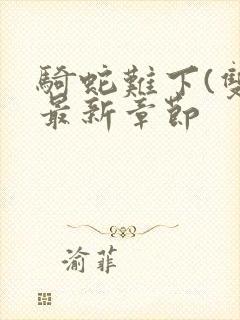 騎蛇難下(雙
最新章節
渝菲